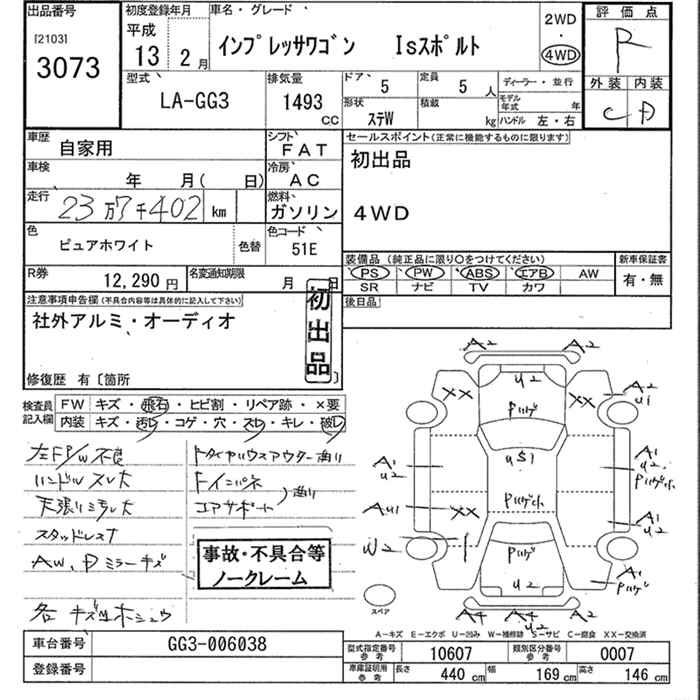 出品番号
[2103]
3073
初度登録年月
平成
13 2月
車名・グレード
インプレッサワゴン Isスポルト
2WD
・
4WD
評価点
R
外装 内装
C D
型式
LA-GG3
排気量
1493
CC
ドア 5
定員 5人
ディーラー・並行
形状 ステW
積載 kg
モデル年式 年
ハンドル 左・右
車歴 自家用
シフト FAT
セールスポイント(正常に機能するものに限ります)
初出品
4WD
車検 年 月( 日)
冷房 AC
走行 23万7千402 km
燃料 ガソリン
色 ピュアホワイト 色替
色コード 51E
装備品(純正品に限り○をつけてください)
PS PW ABS エアB AW
SR ナビ TV カワ
新車保証書
有・無
R券 12,290円
名変通知期限 月 日
後日品
注意事項申告欄(不具合内容等は具体的に記入して下さい)
社外アルミ・オーディオ
初出品
修復歴 有〔箇所 〕
検査員記入欄
FW キズ・飛石・ヒビ割・リペア跡・×要
内装 キズ・汚レ・コゲ・穴・スレ・キレ・破レ
左FP/W不良
ハンドルスレ大
天張リ汚レ大
スタッドレス
AW、Dミラーキズ
各キズ凹
コアサポート
曲り
事故・不具合等
ノークレーム
A2 A2
XX U2 XX A2
U1
Pハゲ
A1
U2
US1
A1
U2
Pハゲ
AU1 XX Pハゲ小
A1
U2
W2
Pハゲ
A1
Pハゲ
U2
スペア
A4 A4 A2
U2
A-キズ E-エクボ U-凹み W-補修跡 S-サビ C-腐食 XX-交換済
車台番号 GG3-006038
登録番号
型式指定番号参考 10607
類別区分番号参考 0007
車庫証明用参考 長さ 440cm 幅 169cm 高さ 146cm